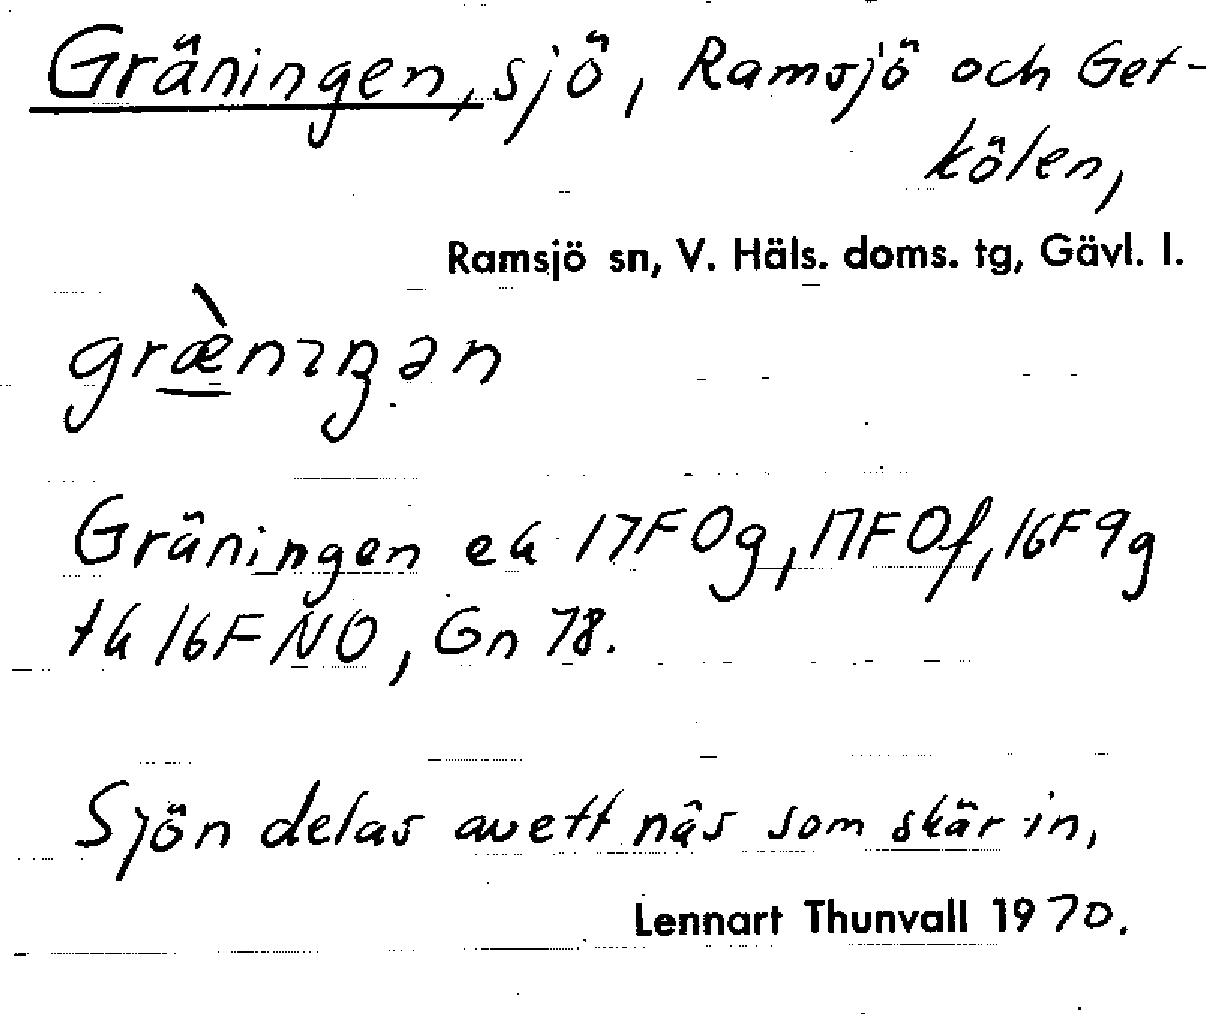 Gräningen, sjö, Ramsjö och Get-
kölen,
Ramsjö sn, V. Häls. doms. tg, Gävl. l.
græ̀nıŋən
Gräningen ek 17F0g, 17F0f, 16F9g
tk 16F NO, Gn 78.
Sjön delas av ett näs som skär in,
Lennart Thunvall 1970.